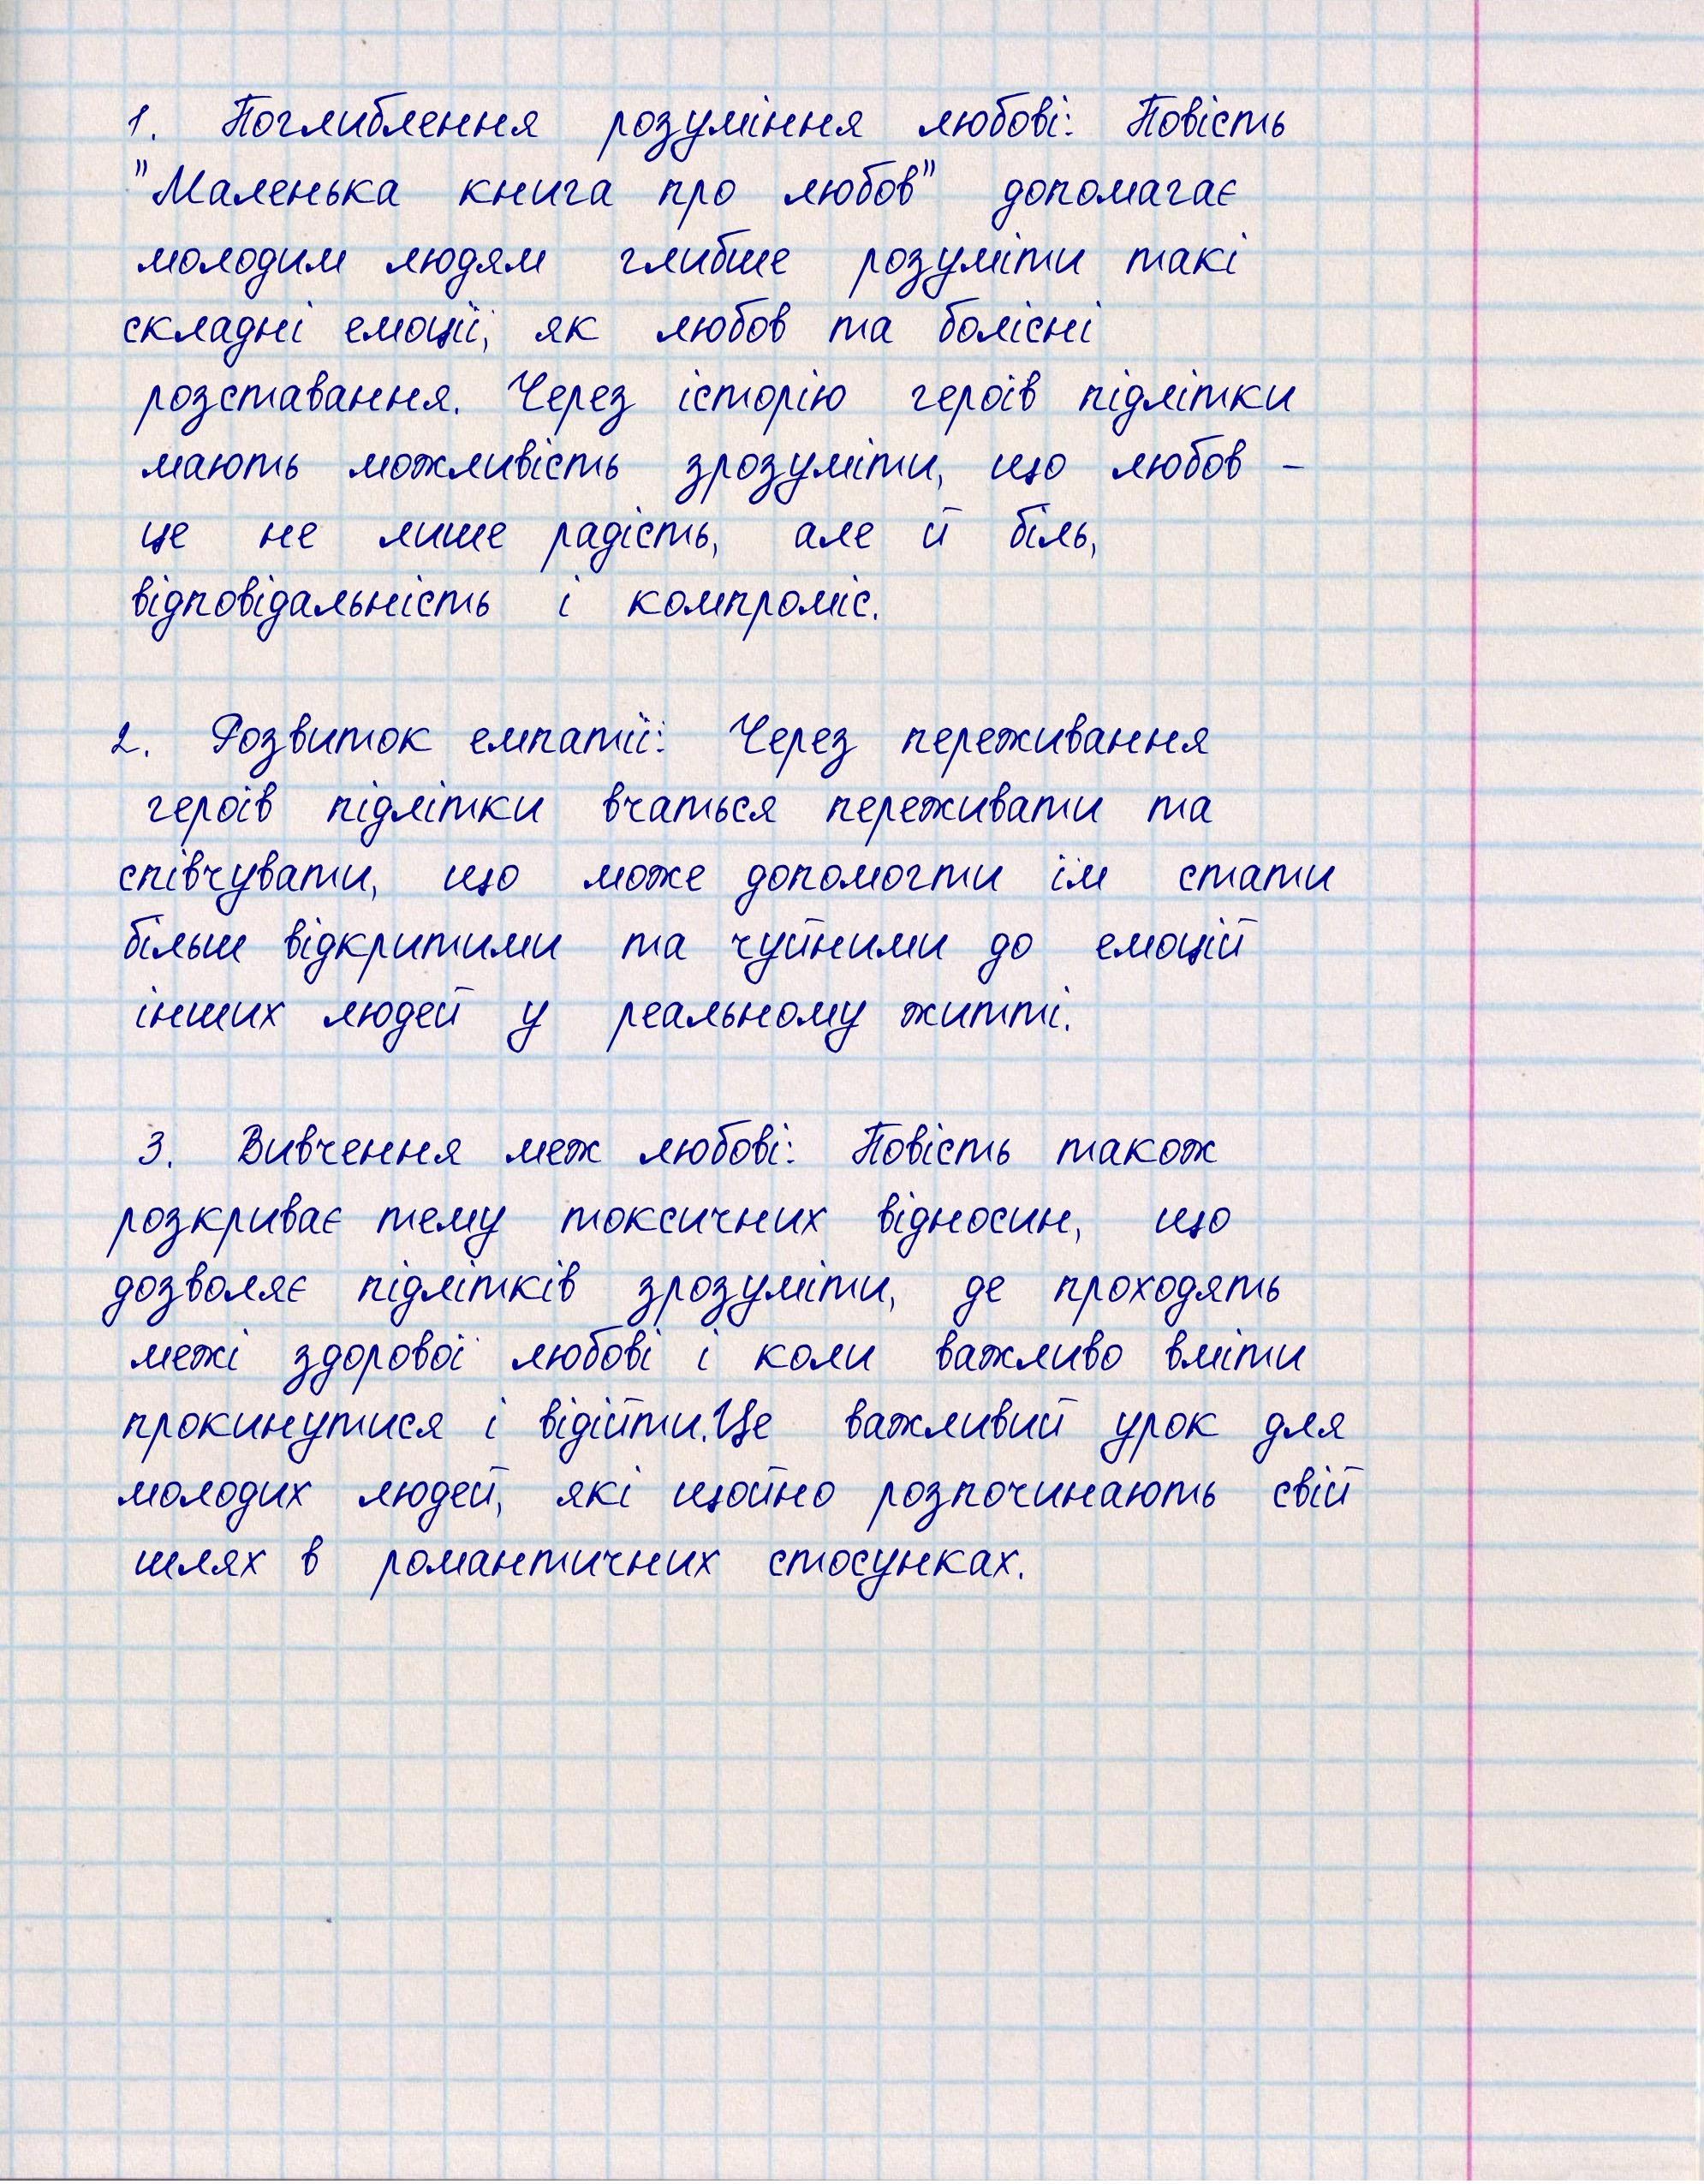 1. Поглиблення розуміння любові: Повість
"Маленька книга про любов" допомагає
молодим людям глибше розуміти такі
складні емоції, як любов та болісні
розставання. Через історію героїв підлітки
мають можливість зрозуміти, що любов -
це не лише радість, але й біль,
відповідальність і компроміс.
2. Розвиток емпатії: Через переживання
героїв підлітки вчаться переживати та
співчувати, що може допомогти їм стати
більш відкритими та чуйними до емоцій
інших людей у реальному житті.
3. Вивчення меж любові: Повість також
розкриває тему токсичних відносин, що
дозволяє підлітків зрозуміти, де проходять
межі здорової любові і коли важливо вміти
прокинутися і відійти.Це важливий урок для
молодих людей, які щойно розпочинають свій
шлях в романтичних стосунках.